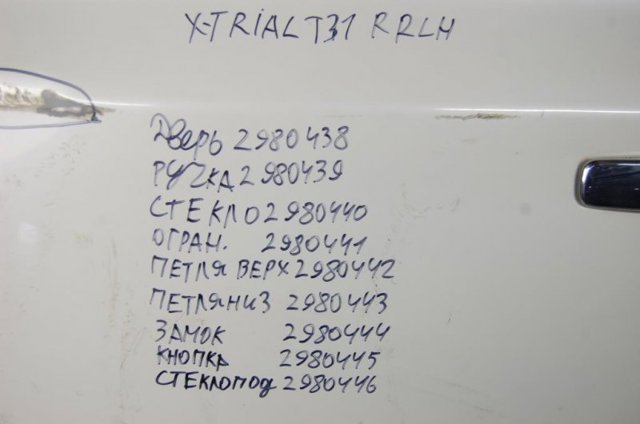 X-TRIAL T31 RRLH
Дверь 2980438
РУЧКА 2980439
СТЕКЛО 2980440
ОГРАН. 2980441
ПЕТЛЯ ВЕРХ 2980442
ПЕТЛЯ НИЗ 2980443
ЗАМОК 2980444
КНОПКА 2980445
СТЕКЛОПОД 2980446